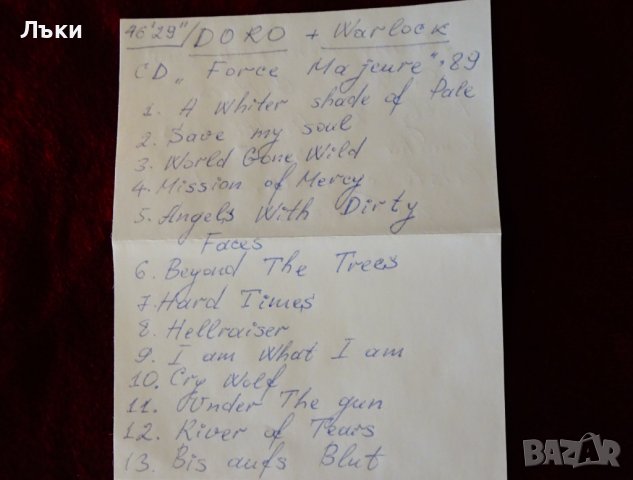 Лъки
46'29"/DORO + Warlock
CD „ Force Majcure", 89
1. A Whiter shade of Pale
2. Save my soul
3. World Gone Wild
4. Mission of Mercy
5. Angels With Dirty
Faces
6. Beyond The Trees
7. Hard Times
8. Hellraiser
9. I am What I am
10. Cry Wolf
11. Under The gun
12. River of Tears
13. Bis aufs Blut
BAZAR